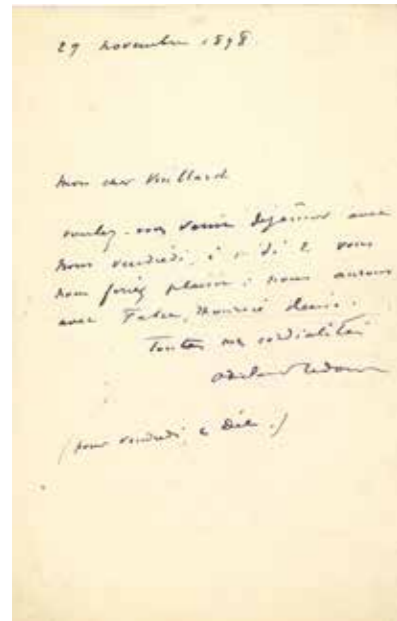 29 novembre 1898.
Mon cher Vuillard
voulez-vous venir déjeûner avec
nous vendredi, à midi ? vous
nous feriez plaisir : nous aurons
avec Fabre, Maurice Denis.
Toutes mes cordialités
Odilon Redon
(pour vendredi, 2 Déc.)